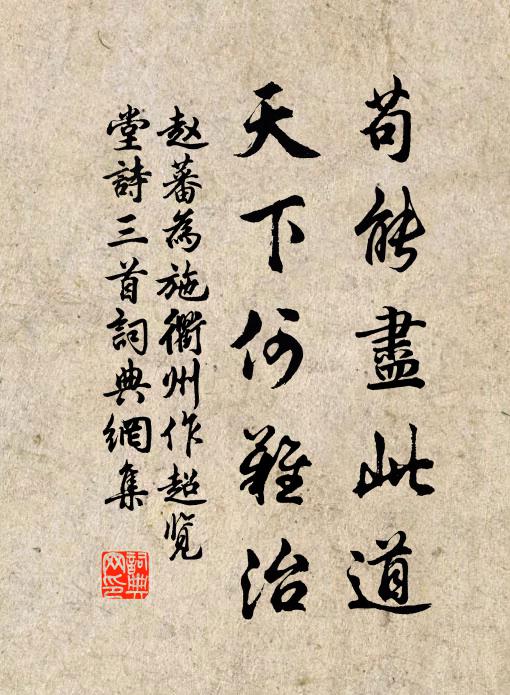 苟能盡此道
天下何難治
赵蕃為施衢州作超覽
堂詩三首詞典網集
詞典網印